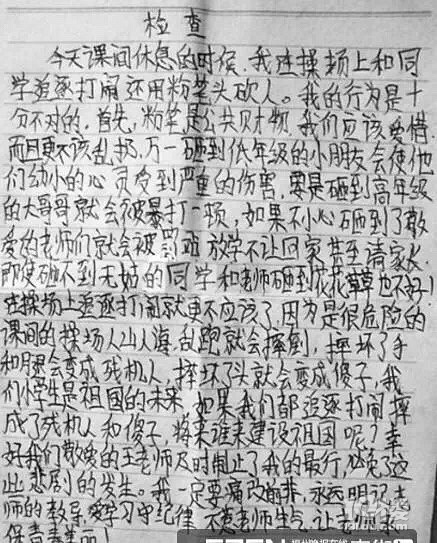 检查
今天课间休息的时候,我在操场上和同
学追逐打闹还用粉笔头砍人。我的行为是十
分不对的,首先,粉笔是公共财物,我们应该爱惜
而且更不该乱扔,万一砸到低年级的小朋友会使他
们幼小的心灵受到严重的伤害,要是砸到高年级
的大哥哥就会被暴打一顿,如果不小心砸到了敬
爱的老师们就会被罚站放学不让回家甚至请家长
即使砸不到无辜的同学和老师砸到花花草草也不好!
在操场上追逐打闹就更不应该了,因为是很危险的
课间的操场人山人海,乱跑就会摔倒,摔坏了手
和腿会变成残机人,摔坏了头就会变成傻子,我
们小学生是祖国的未来,如果我们都追逐打闹摔
成了残机人和傻子,将来谁来建设祖国呢?幸
好我们敬爱的王老师及时制止了我的暴行,避免了这
些悲剧的发生。我一定要痛改前非,永远明记老
师的教导,好学习守纪律不惹老师生气,让老师永
保青春美丽!